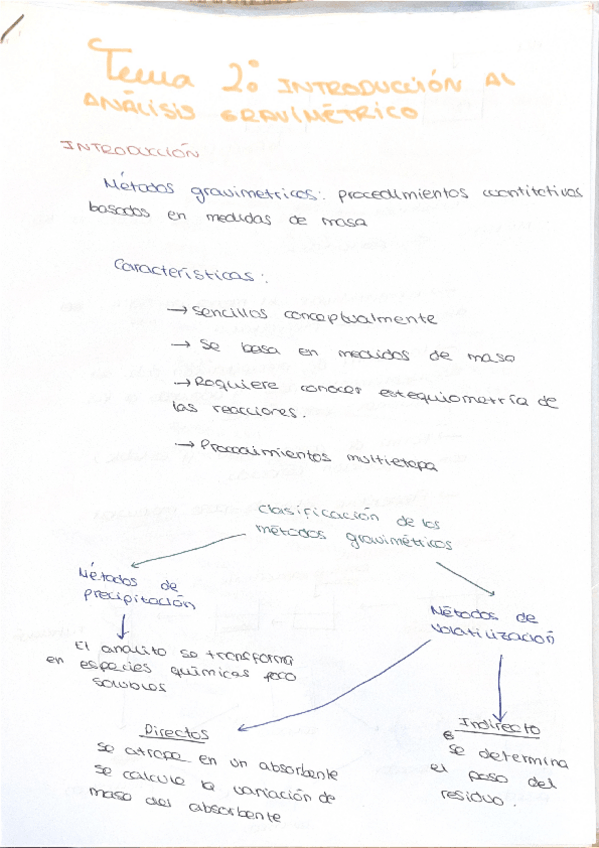 Tema 2: INTRODUCCIÓN AL
ANÁLISIS GRAVIMÉTRICO
INTRODUCCIÓN
Métodos gravimetricos: procedimientos cuantitativos
basados en medidas de masa
Características:
→ Sencillos conceptualmente
→ Se basa en medidas de masa
→ Requiere conocer estequiometría de
las reacciones.
→ Procedimientos multietapa
Clasificación de los
métodos gravimétricos
Métodos de
precipitación
El analito se transforma
en especies químicas poco
solubles
Métodos de
volatilización
Directos
Se atrapa en un absorbente
se calcula la variación de
masa del absorbente
Indirecto
se determina
el peso del
residuo.